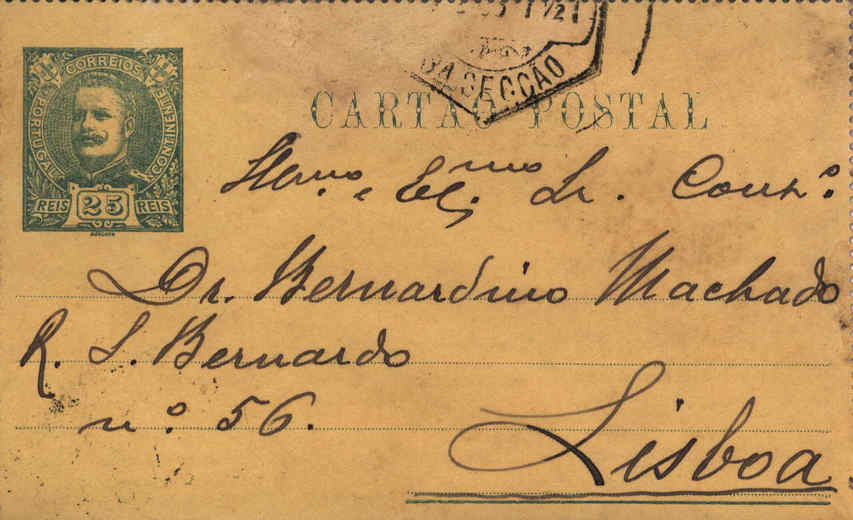 CORREIOS
PORTUGAL
CONTINENTE
REIS 25 REIS
1½T
SECÇÃO
CARTÃO POSTAL
Illmo. e Ex.mo Sr. Cons.o
Dr. Bernardino Machado
R. S. Bernardo
n.o 56.
Lisboa